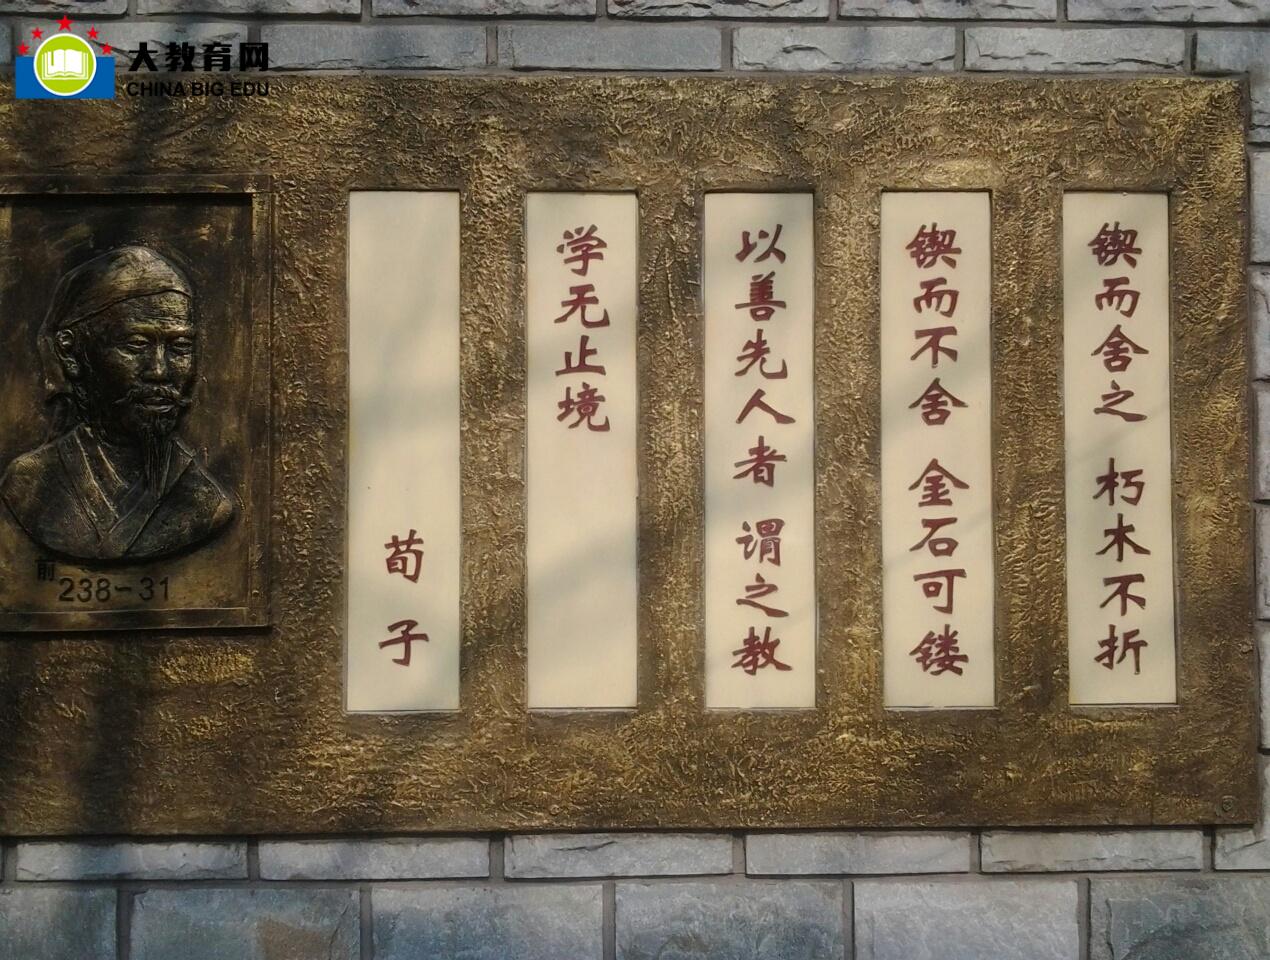 大教育网
CHINA BIG EDU
锲而舍之 朽木不折
锲而不舍 金石可镂
以善先人者 谓之教
学无止境
荀子
前
238-31